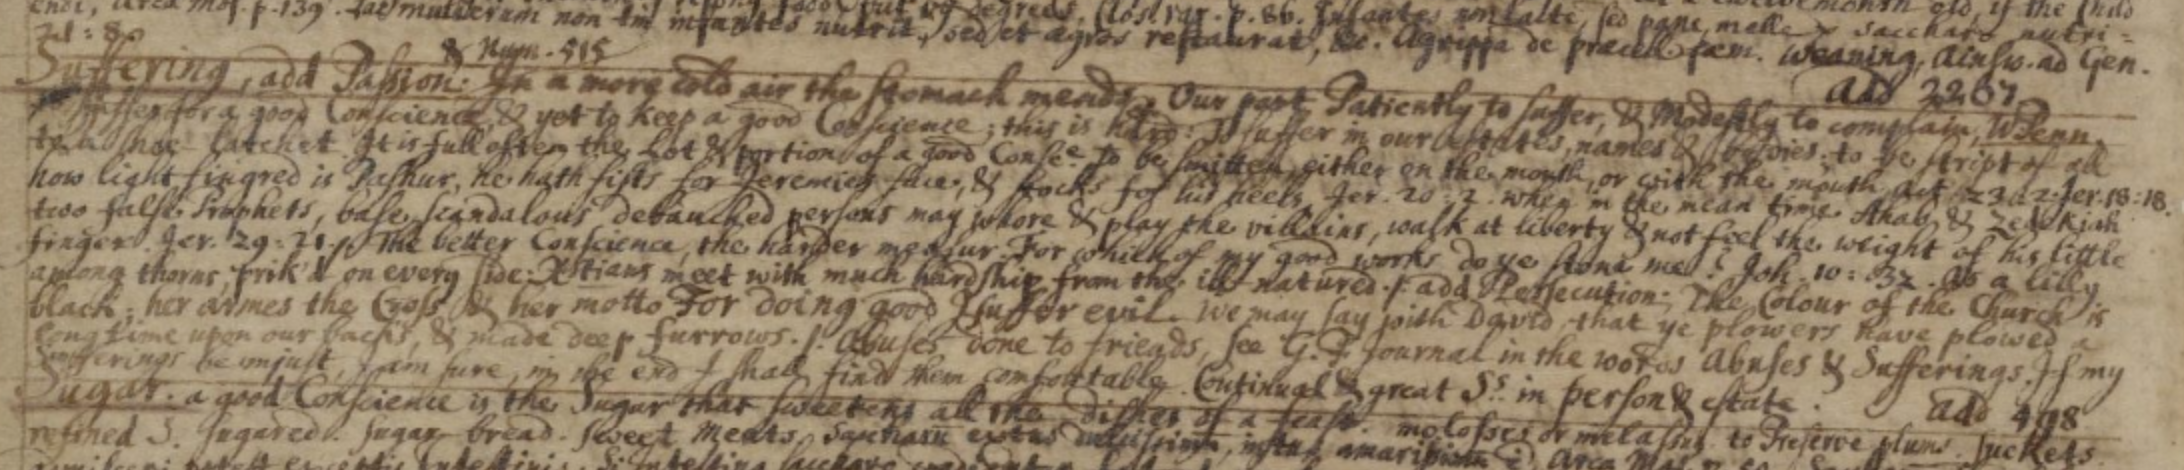 endi, Arca Mos. p. 139. Lac mulierum non tm infantes nutrit, sed et aegros restaurat, &c. Agrippa de praecell faem. weaning, Ainsw. ad Gen.
21:8.
& Num. 515
add 2267
Suffering, add Passion. In a more cold air the stomach mends. Our part Patiently to suffer, & Modestly to complain, W Penn.
To suffer for a good Conscience, & yet to keep a good Conscience; this is hard. To suffer in our estates, names & bodies: to be stript of all
to a shoe latchet. It is full often the Lot & portion of a good Consce to be smitten, either on the mouth, or with the mouth Act 23.2. Jer. 18:18.
how light fingred is Pashur, he hath fists for Jeremies face, & stocks for his heels, Jer. 20:2. when in the mean time Ahab & Zedekiah
two false Prophets, base, scandalous debauched persons may whore & play the villains, walk at liberty & not feel the weight of his little
finger. Jer. 29:21. The better Conscience, the harder measur. For which of my good works do ye stone me? Joh. 10:32. As a lilly
among thorns, prik'd on every side: Xstians meet with much hardship from the ill-natured. add Persecution. The Colour of the Church is
black; her armes the Cross & her motto For doing good I suffer evil. We may say with David, that ye plowers have plowed a
long time upon our backs, & made deep furrows. Abuses done to friends, see G. F. Journal in the words Abuses & Sufferings. If my
Sufferings be unjust, I am sure, in the end I shall find them comfortable. Continual & great Ss. in person & estate.
add 498
Sugar. a good Conscience is the Sugar that sweetens all the dishes of a feast. molosses or melasses. to Preserve plums. Suckets.
refined S. Sugared. Sugar bread. Sweet Meats.